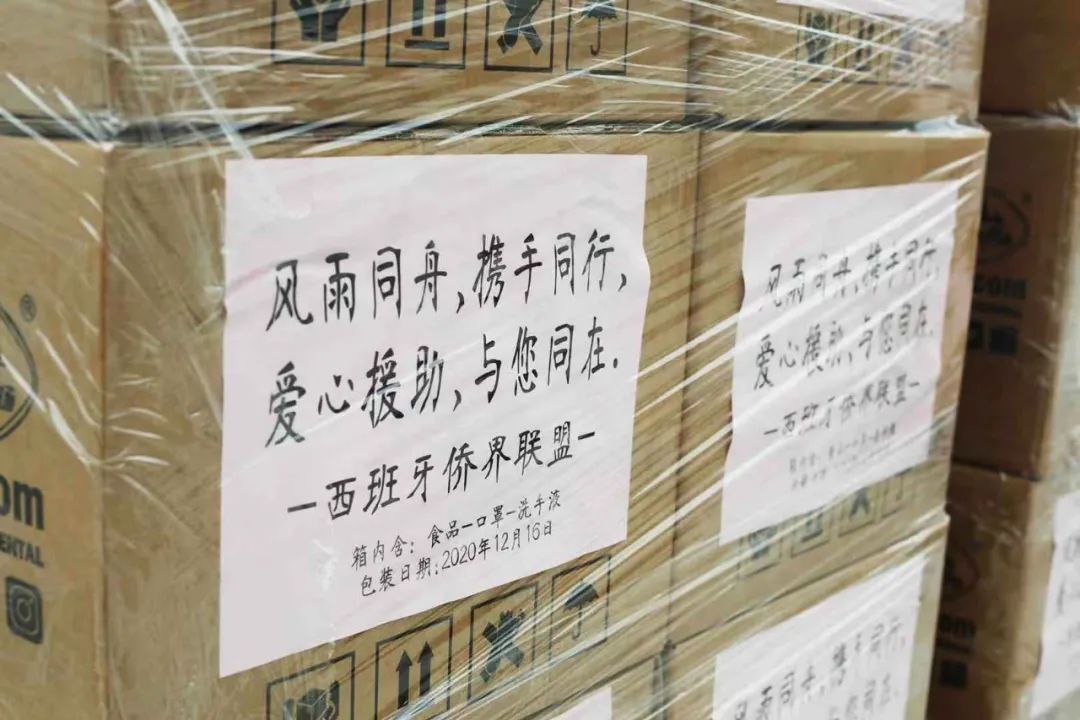 风雨同舟,携手同行,
爱心援助,与您同在.
-西班牙侨界联盟-
箱内含: 食品-口罩-洗手液
包装日期:2020年12月16日
风雨同舟,携手同行,
爱心援助,与您同在.
-西班牙侨界联盟-
风雨同舟,携手同行,
om
ENTAL
®
com
om